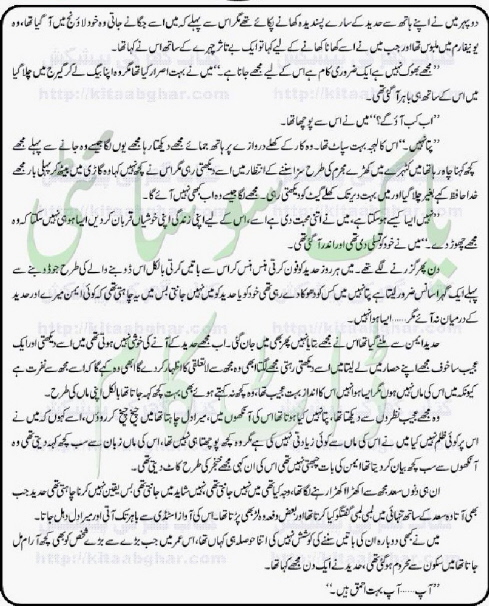 دوپہر میں نے اپنے ہاتھ سے حدید کے سارے پسندیدہ کھانے پکائے تھے مگر اس سے پہلے کہ میں اسے جگانے جاتی وہ خود لاؤنج میں آ گیا تھا، وہ
یونیفارم میں ملبوس تھا اور جب میں نے اسے کھانا کھانے کے لیے کہا تو ایک بے تاثر چہرے کے ساتھ اس نے کہا تھا۔
”مجھے بھوک نہیں ہے ایک ضروری کام ہے اس کے لیے مجھے جانا ہے۔“ میں نے بہت اصرار کیا تھا مگر وہ اپنا بیگ لے کر گیرج میں چلا گیا
میں اس کے ساتھ ہی باہر آ گئی تھی۔
”اب کب آؤ گے؟“ میں نے اس سے پوچھا تھا۔
”پتا نہیں۔“ اس کا لہجہ بہت سپاٹ تھا۔ وہ کار کے کھلے دروازے پر ہاتھ جمائے مجھے دیکھتا رہا مجھے یوں لگا جیسے وہ جانے سے پہلے مجھے
کچھ کہنا چاہ رہا تھا میں کٹہرے میں کھڑے مجرم کی طرح سزا سننے کے انتظار میں اسے دیکھتی رہی مگر اس نے کچھ نہیں کہا وہ گاڑی میں بیٹھ کر پہلی بار مجھے
خدا حافظ کہے بغیر چلا گیا اور میں بہت دیر تک کھلے گیٹ کو دیکھتی رہی۔ مجھے لگا جیسے وہ اب کبھی نہیں آئے گا۔
”نہیں ایسا کیسے ہو سکتا ہے، میں نے اتنی محبت دی ہے اسے، اس کے لیے اپنی زندگی اپنی خوشیاں قربان کر دیں ایسا ہو ہی نہیں سکتا کہ وہ
مجھے چھوڑ دے۔“ میں نے خود کو تسلی دی تھی اور اندر آ گئی تھی۔
دن پھر گزرنے لگے تھے۔ میں ہر روز حدید کو فون کرتی ہنس ہنس کر اس سے باتیں کرتی بالکل اس ڈوبنے والے کی طرح جو ڈوبنے سے
پہلے ایک گہرا سانس ضرور لیتا ہے پتا نہیں میں کس کو دھوکا دے رہی تھی خود کو یا حدید کو میں نہیں جانتی بس میں یہ چاہتی تھی کہ کوئی ایمن میرے اور حدید
کے درمیان نہ آئے مگر۔۔۔۔۔۔ ایسا ہوا نہیں۔
حدید ایمن سے ملنے گیا تھا اس نے مجھے بتایا نہیں پھر بھی میں جان گئی۔ اب مجھے حدید کے آنے کی خوشی نہیں ہوتی تھی میں اسے دیکھتی اور ایک
عجیب سا خوف مجھے اپنے حصار میں لے لیتا میں اسے دیکھتی رہتی مجھے لگتا ابھی وہ مجھ سے لاتعلقی کا اظہار کر دے گا ابھی وہ کہے گا کہ اسے مجھ سے نفرت ہے
کیونکہ میں اس کی ماں نہیں ہوں مگر ایسا ہوا نہیں اس کا انداز بہت عجیب تھا، وہ کچھ نہ کہتے ہوئے بھی بہت کچھ کہہ جاتا تھا بالکل اپنی ماں کی طرح۔
وہ مجھے عجیب نظروں سے دیکھتا تھا، پتا نہیں کیا ہوتا تھا اس کی آنکھوں میں، میرا دل چاہتا میں چیخ چیخ کر روؤں، اسے کہوں کہ میں نے
اس پر کوئی ظلم نہیں کیا میں نے اس کی ماں سے کوئی زیادتی نہیں کی ہے مگر وہ کچھ پوچھتا ہی نہیں تھا، اس کی ماں زبان سے سب کچھ کہہ دیتی تھی وہ
آنکھوں سے سب کچھ بیان کر دیتا تھا ایمن کی بات چبھتی نہیں تھی اس کی ان کہی مجھے خنجر کی طرح کاٹ دیتی تھی۔
ان ہی دنوں سعد مجھ سے اکھڑا اکھڑا رہنے لگا تھا، وجہ کیا تھی میں نہیں جانتی تھی، نہیں شاید میں جانتی تھی بس یقین نہیں کرنا چاہتی تھی حدید جب
بھی آتا وہ سعد کے ساتھ تنہائی میں لمبی لمبی گفتگو کیا کرتا تھا اور بعض دفعہ وہ لڑ بھی پڑتا تھا۔ اس کی آواز اسٹڈی سے باہر تک آتی اور میرا دل دہل جاتا۔
میں نے کبھی دوبارہ ان کی باتیں سننے کی کوشش نہیں کی اتنا حوصلہ ہی کہاں تھا، اس عمر میں جب بڑے سے بڑے شخص کو بھی کچھ آرام مل
جاتا تھا میں سکون سے محروم ہو گئی تھی، حدید نے ایک دن مجھے کہا تھا۔
”آپ۔۔۔۔۔۔ آپ بہت احمق ہیں۔“
پاک سوسائٹی
ڈاٹ کام
کتاب گھر کی پیشکش
http://kitaabghar.com